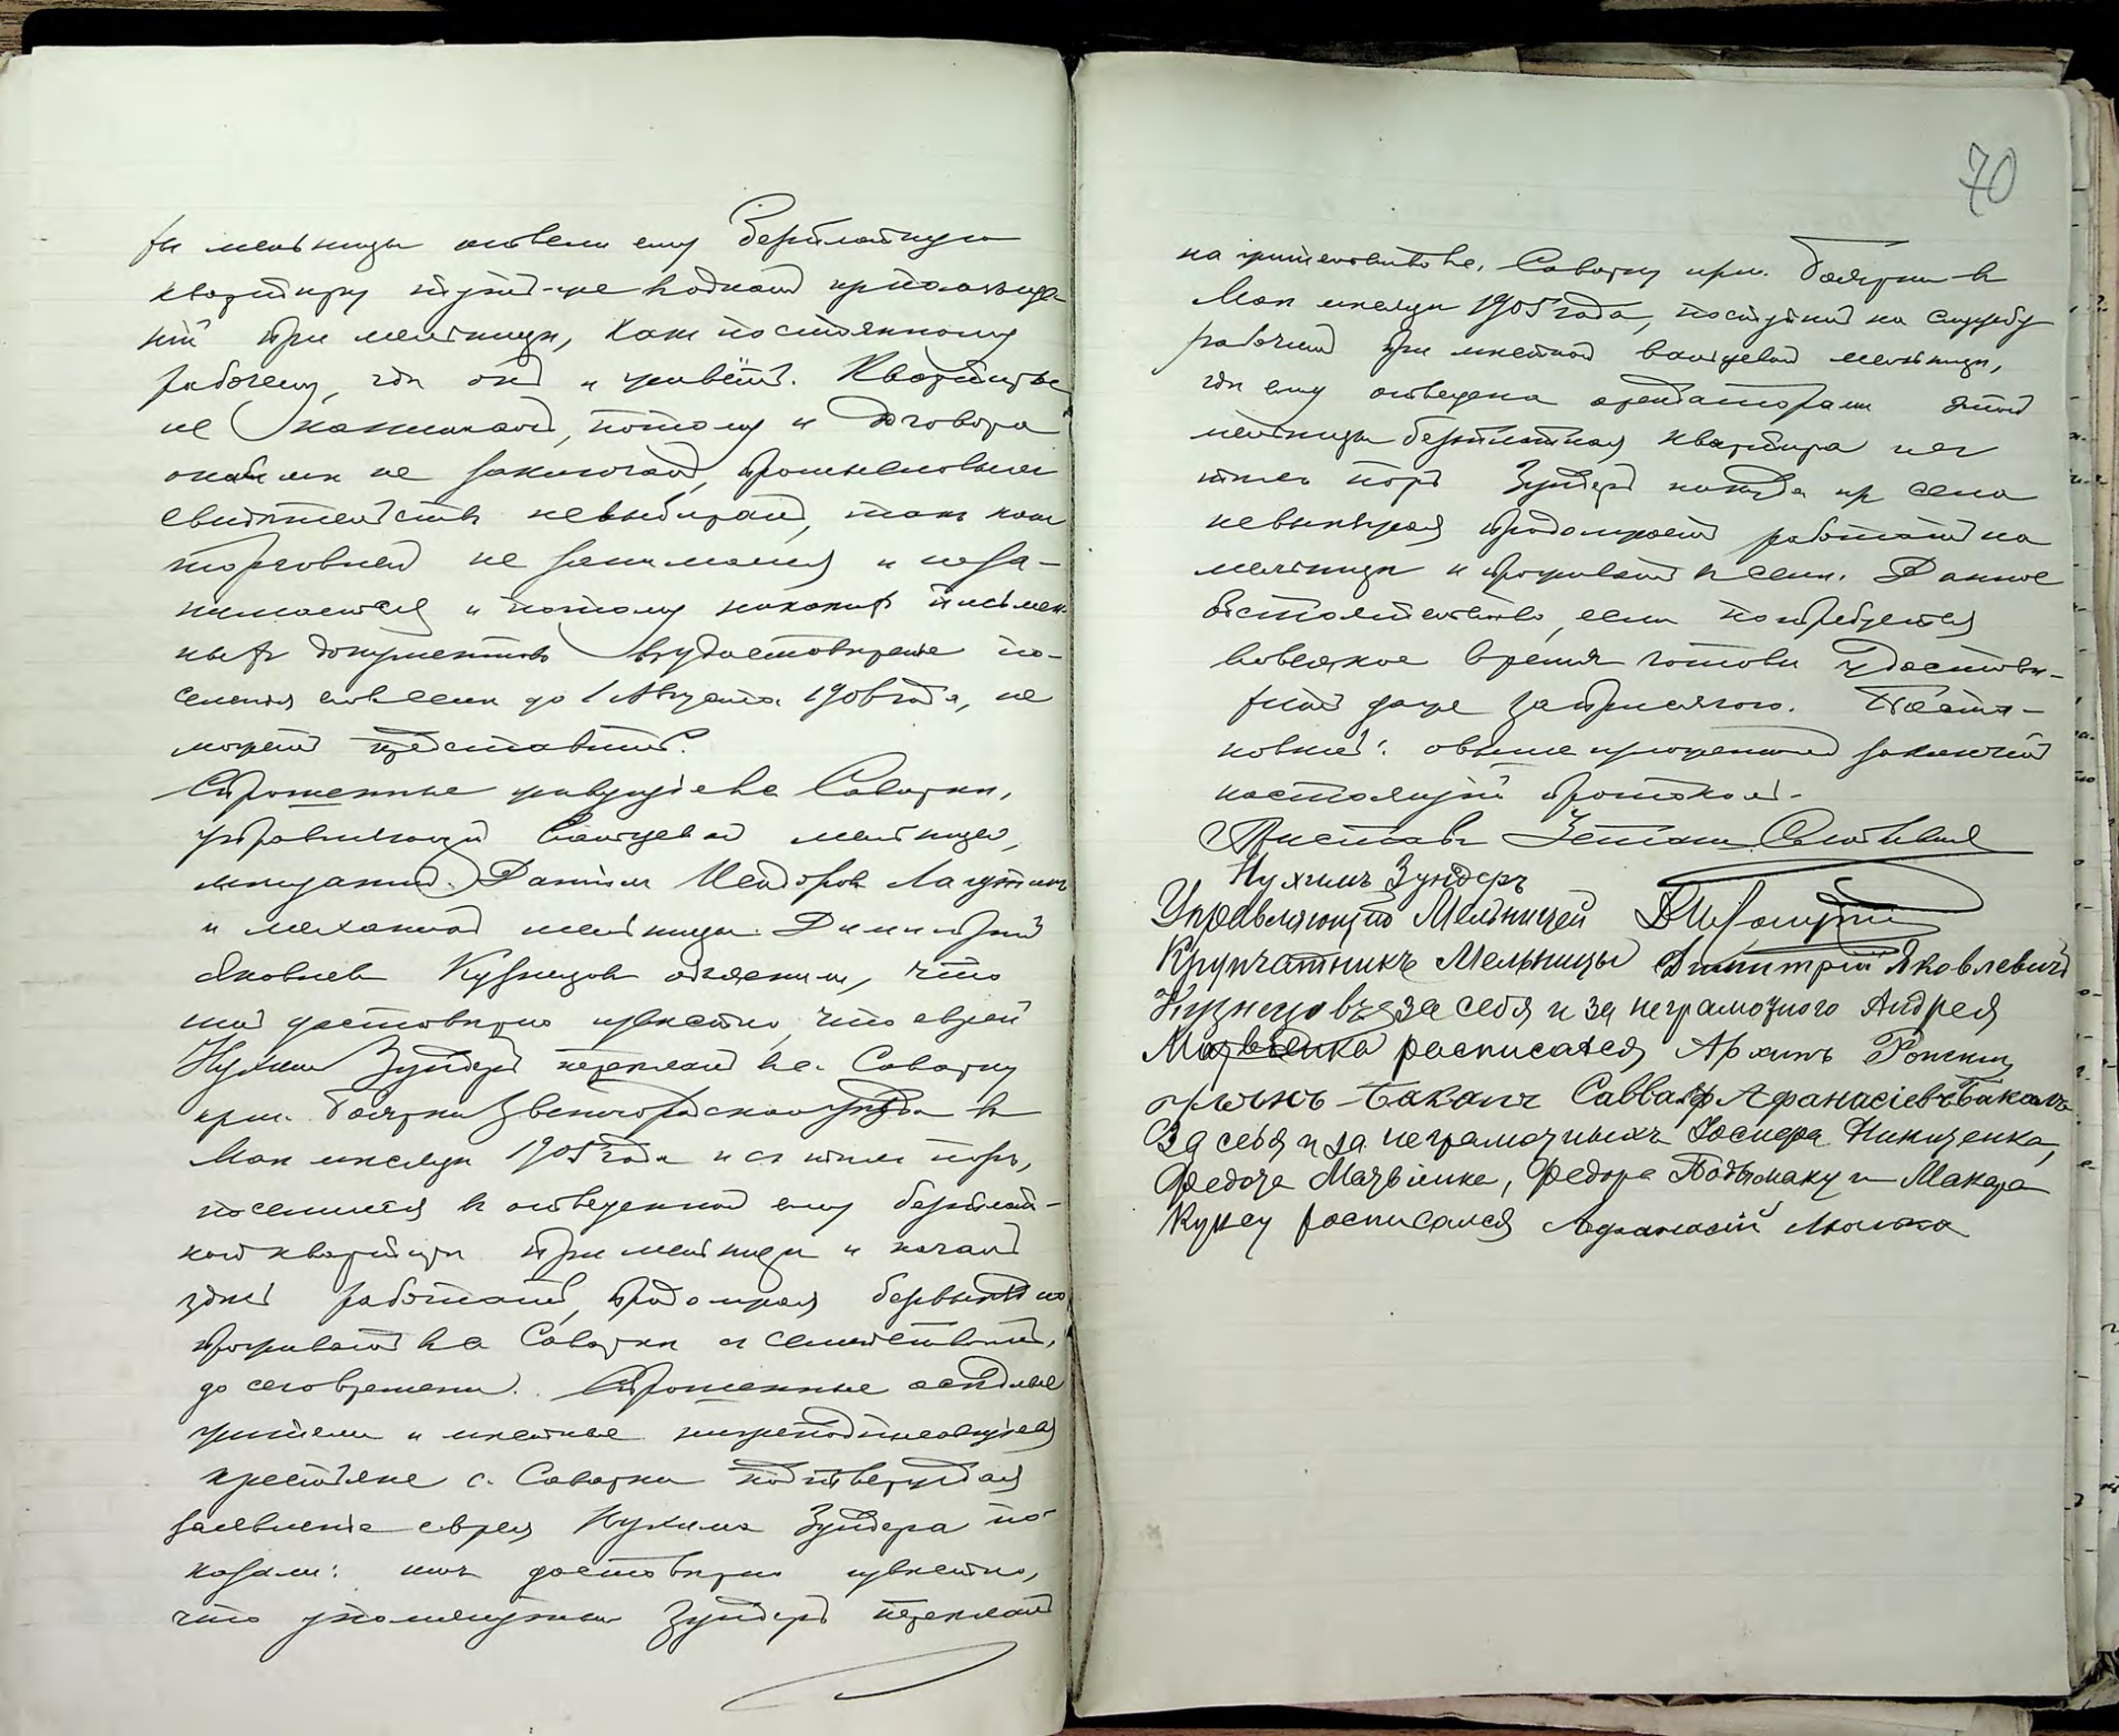 ры мельницы отвели ему безплатную
квартиру тутъ-же въ одномъ
при мельницѣ, какъ постоянному
рабочему, гдѣ онъ и живётъ. Квартиры
не нанималъ, потому и договора
не заключалъ, промысловыхъ
свидѣтельствъ невыбиралъ, такъ какъ
торговлей не занимался и неза-
нимается и потому никакихъ письмен-
ныхъ документовъ въ удостовѣреніе по-
селенія его въ селѣ до 1 Августа 1906 года, не
можетъ представить.
Спрошенные живущіе въ с. Саваркѣ,
управляющій вальцевой мельницы,
мѣщанинъ Даніилъ Лагутинъ
и механикъ мельницы Димитрій
Яковлевъ Кузнецовъ объяснили, что
имъ достовѣрно извѣстно, что еврей
Нухимъ Зундеръ переѣхалъ въ с. Саварку
изъ м. Боярки Звенигородского уѣзда въ
Маѣ мѣсяцѣ 1905 года и съ тѣхъ поръ,
поселился въ отведенной ему безплат-
ной квартирѣ при мельницѣ и началъ
здѣсь работать, продолжая безвыѣздно
проживать въ с. Саваркѣ съ семействомъ,
до сего времени. Спрошенные осѣдлые
жители и мѣстные нижеподписавшіеся
крестьяне с. Саварки подтверждая
заявленіе еврея Нухима Зундера по-
казали: имъ достовѣрно извѣстно,
что упомянутый Зундеръ переѣхалъ
70
на жительство въ с. Саварку изъ м. Боярки въ
Маѣ мѣсяцѣ 1905 года, поступилъ на службу
рабочимъ при мѣстной вальцевой мельницѣ,
гдѣ ему отведена арендаторами этой
мельницы безплатная квартира и съ
тѣхъ поръ Зундеръ никуда изъ села
невыѣзжая продолжаетъ работать на
мельницѣ и проживать въ селѣ. Данное
обстоятельство, если потребуется
во всякое время готовы удостовѣ-
рить даже за присягою. Поста-
новилъ: о вышеизложенномъ заключить
настоящій протоколъ.
Приставъ
Нухимъ Зундеръ
Управляющій Мельницей
Крупчатникъ Мельницы Димитрій Яковлевичъ
Кузнецовъ за себя и за неграмотного Андрея
Матвѣенка расписался Архипъ
Баканъ Савва Афанасіевъ Баканъ
За себя и за неграмотныхъ Никитенка,
Федора Матвіенка, Федора Подымаку и Макара
Куксу росписался Афанасій Люлька